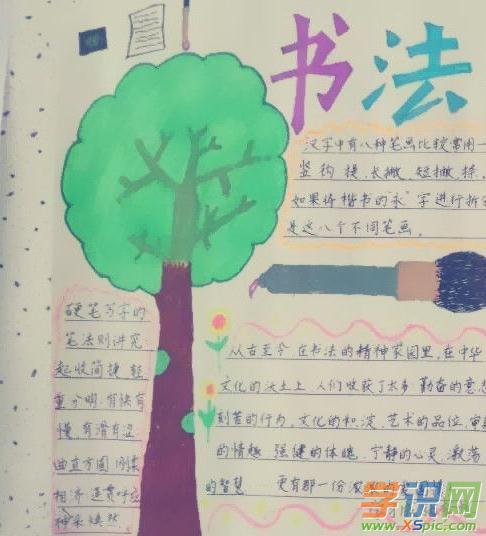 书法
汉字中有八种笔画比较常用一
竖 钩 提、长撇、短撇、捺、
如果将楷书的"永"字进行拆
是这八个不同笔画。
硬笔写字的
笔法则讲究
起收简捷 轻
重分明、有快有
慢、有滑有涩
曲直方圆 刚柔
相济 连贯呼应
神采焕然
从古至今 在书法的精神家园里,在中华
文化的沃土上 人们收获了太多 勤奋的意志
刻苦的行为、文化的积淀、艺术的品位、审
的情趣 强健的体魄、宁静的心灵、激荡
的智慧 更有那一份
学识网
www.XSpic.com